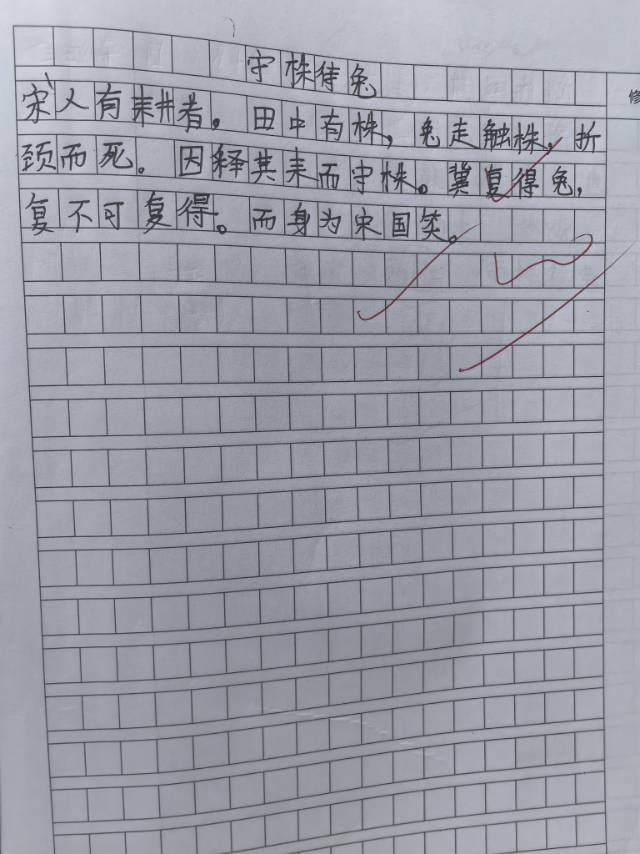 守株待兔
宋人有耕者。田中有株,兔走触株,折
颈而死。因释其耒而守株。冀复得兔,
复不可复得。而身为宋国笑。
修